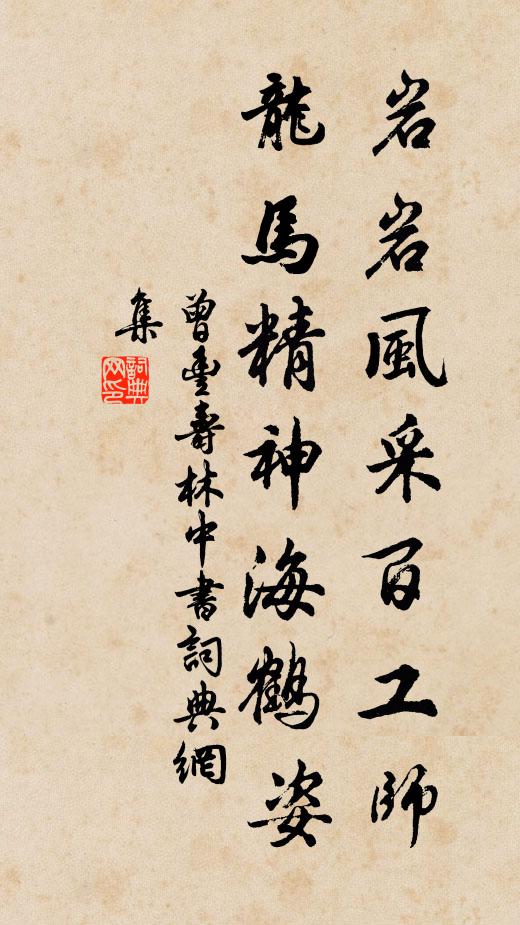 岩岩風采百工師
龍馬精神海鶴姿
曾豐壽林中書詞典網
集
詞典
网印